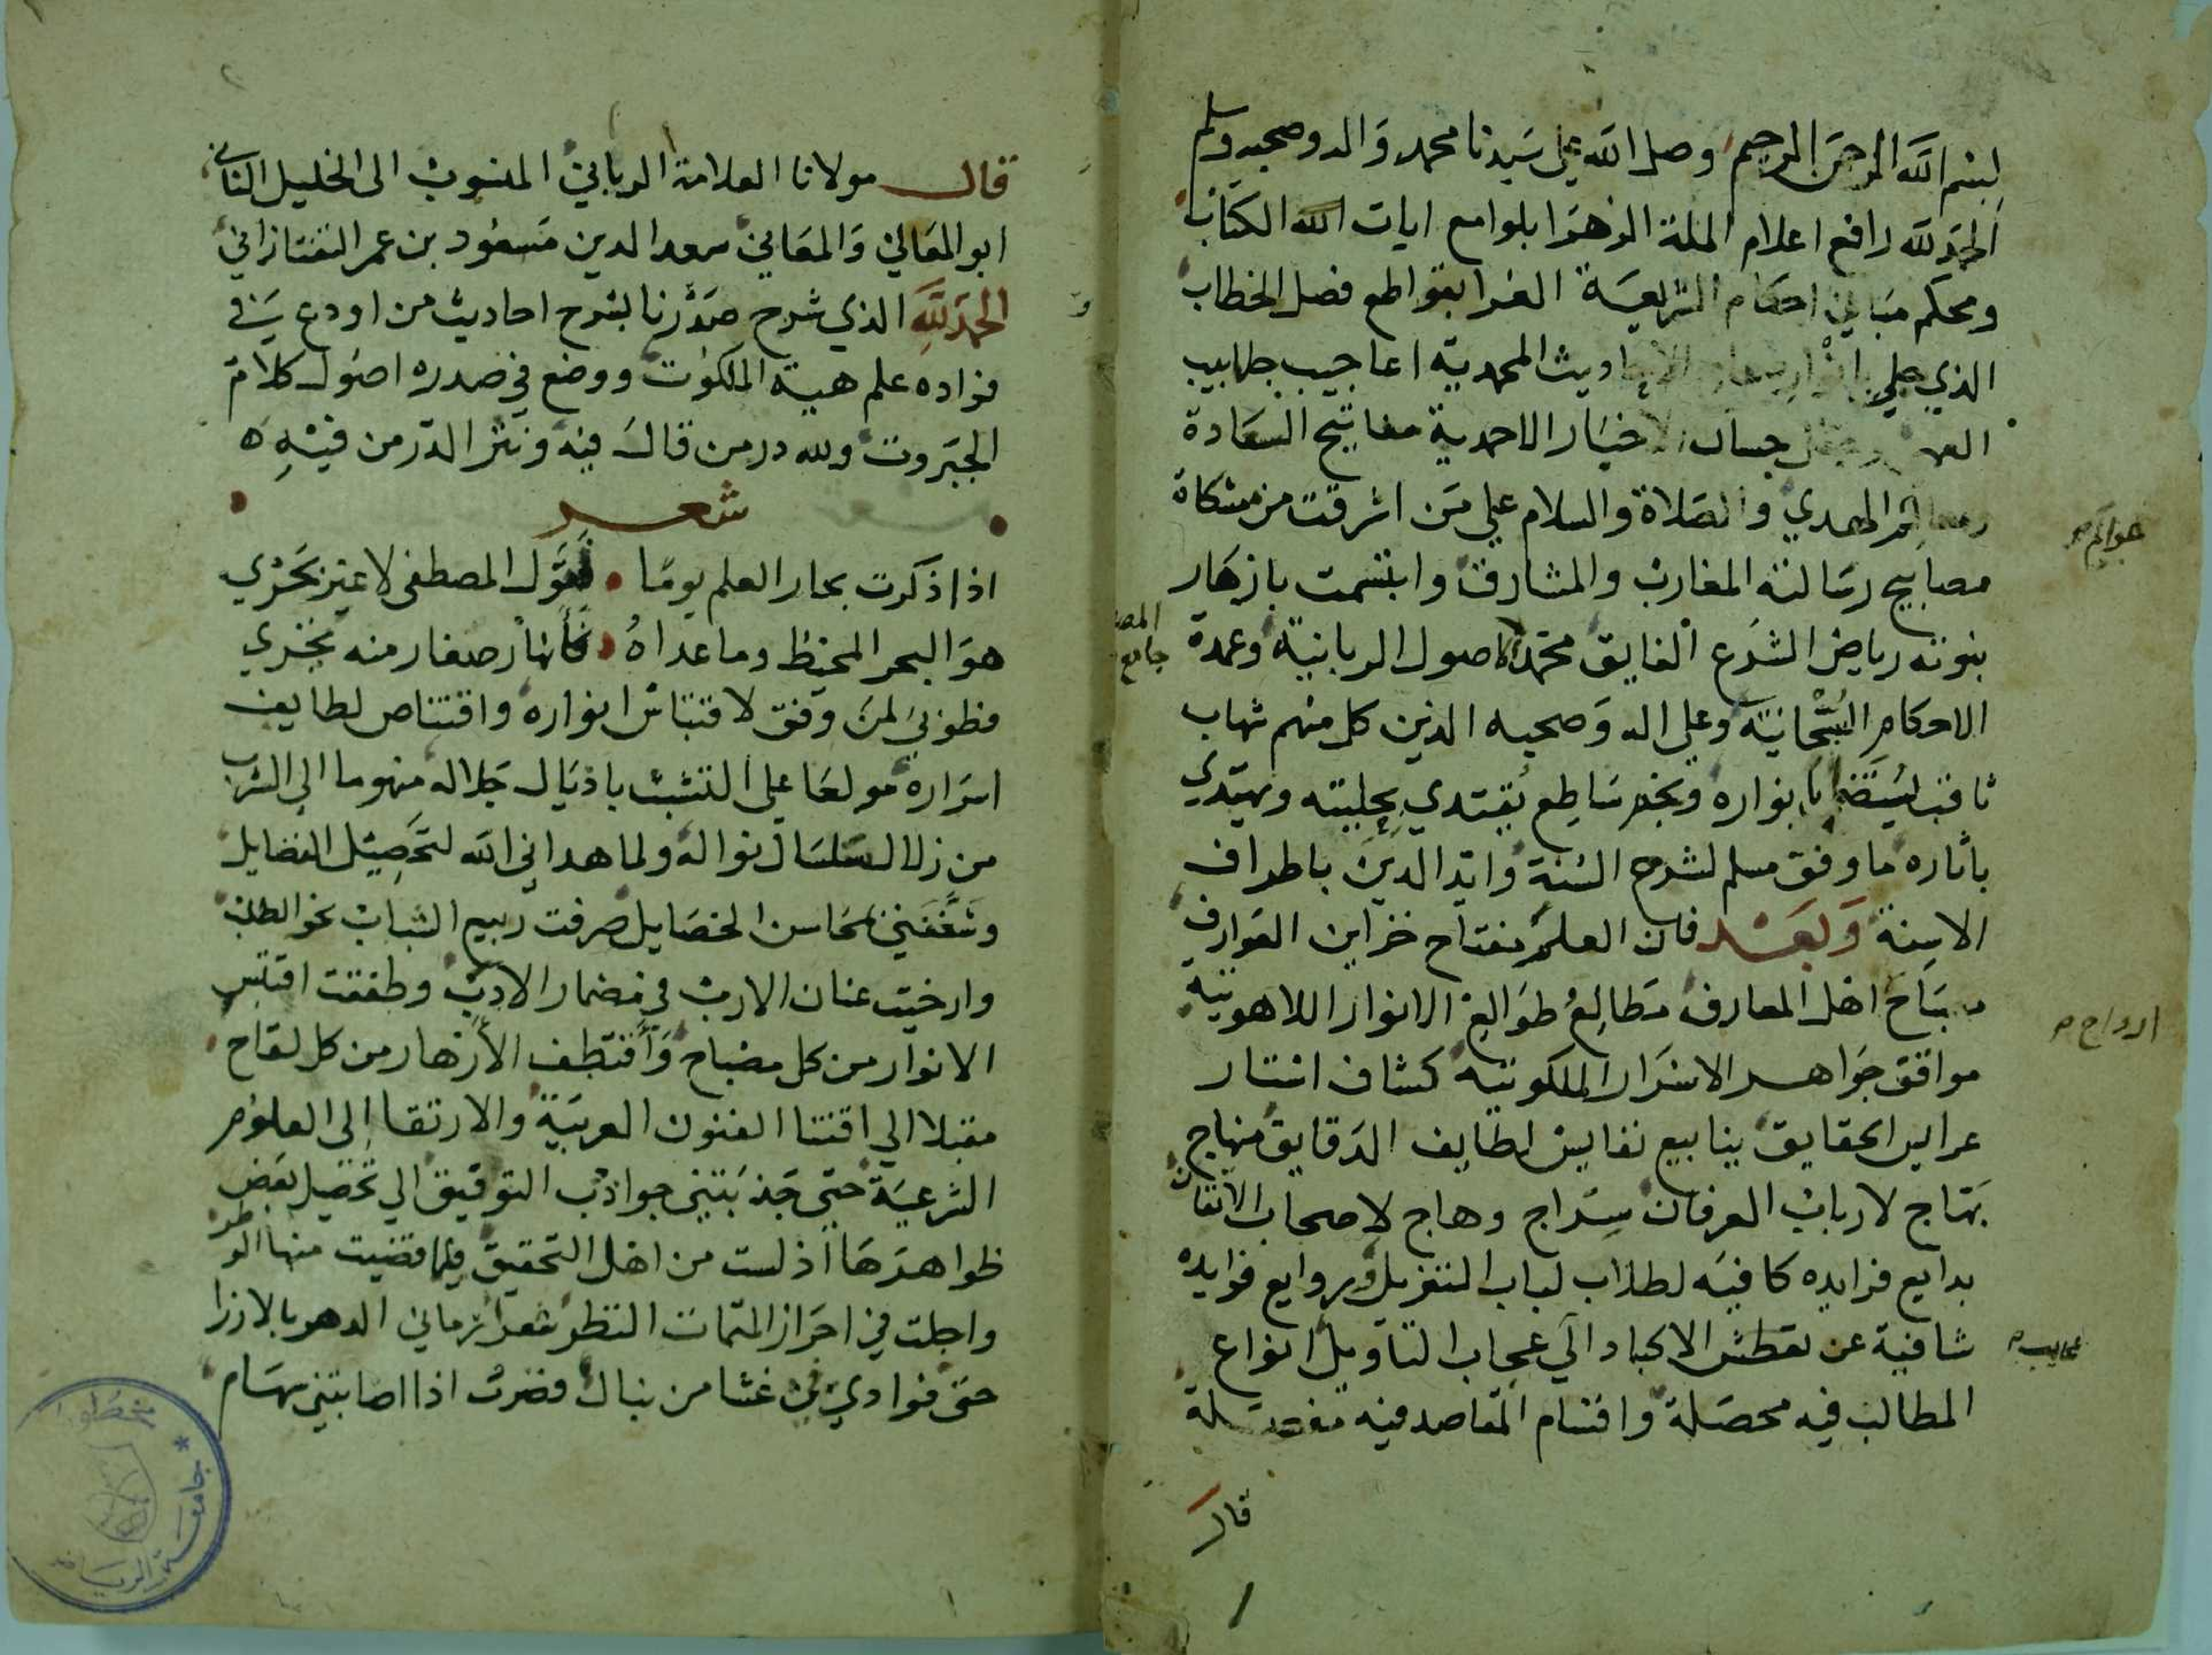 بسم الله الرحمن الرحيم وصلى الله على سيدنا محمد واله وصحبه وسلم
الحمد لله رافع اعلام الملة الزهرا بلوامع ايات الله الكتاب
ومحكم مباني احكام الشريعة الغرا بقواطع فصل الخطاب
الذي جلي المحمدية اعاجيب جلابيب
حسان الاخبار الاحمدية مفاتيح السعادة
الهدي والصلاة والسلام علي من اشرقت من مشكاة
عوالم
مصابيح رسالته المغارب والمشارق وابتسمت بازهار
نبوته رياض الشرع الفايق محمد الاصول الربانية وعمدة
جامع
الاحكام السبحانية وعلي اله وصحبه الذين كل منهم شهاب
ثاقب يستضا بانواره ونجم ساطع يقتدي بحليته ويهتدي
باثاره ما وفق مسلم لشرح السنة وايد الدين باطراف
الاسنة وبعد فان العلم مفتاح خزاين العوارف
اهل المعارف مطالع طوالع الانوار اللاهوتية
ارواح
مواقف جواهر الاسرار الملكوتية كشاف استار
عرايس الحقايق ينابيع نفايس لطايف الدقايق منهاج
لارباب العرفان سراج وهاج لاصحاب الاتقان
بدايع فرايده كافية لطلاب لباب التنزيل وروايع فوايده
شافية عن تعطش الاكباد الي عجاب التاويل انواع
المطالب فيه محصلة واقسام المقاصد فيه مفصلة
قال
قال مولانا العلامة الرباني المنسوب الى الخليل الثاني
ابو المعالي والمعاني سعد الدين مسعود بن عمر التفتازاني
الحمد لله الذي شرح صدرنا بشرح احاديث من اودع في
فواده علم هيبة الملكوت ووضع في صدره اصول كلام
الجبروت ولله در من قال فيه ونثر الدر من فيه ه
شعر
اذا ذكرت بحار العلم يوما المصطفى لا غير بحري
هو البحر المحيط وما عداه فانهار صغار منه تجري
فطوبي لمن وفق لاقتباس انواره واقتناص لطايف
اسراره مولعا علي التشبث باذيال جلاله منهوما الى الشرب
من زلال سلسال نواله ولما هداني الله لتحصيل الفضايل
وشغفني محاسن الخصايل صرفت ربيع الشباب نحو الطلب
وارخيت عنان الارب في مضمار الادب وطفقت اقتبس
الانوار من كل مصباح واقتطف الازهار من كل لقاح
مقبلا الي اقتنا الفنون العربية والارتقا الى العلوم
الشرعية حتى جذبتني جواذب التوفيق الي تحصيل بعض
ظواهرها اذ لست من اهل التحقيق فلما قضيت منها الوطر
واجلت في احراز المتمات النظر شعر رماني الدهر بالارزا
حتى فوادي في غشا من نبال فصرت اذا اصابتني سهام
مخطوطات
جامعة الرياض